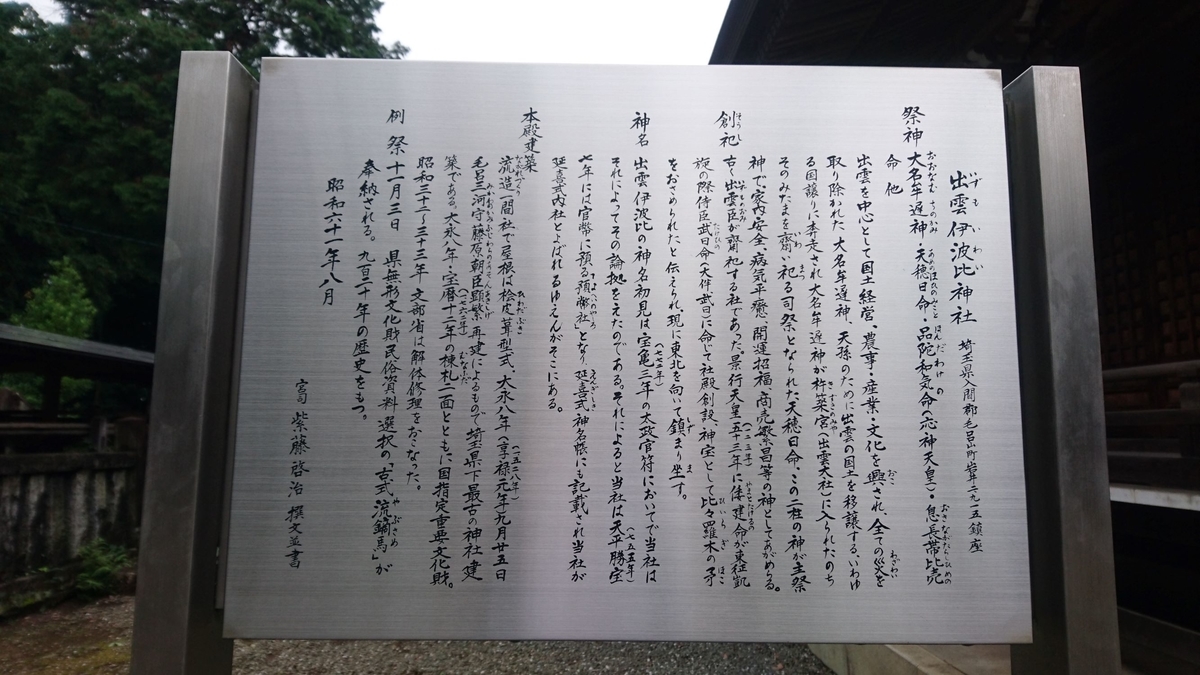 出雲伊波比神社 埼玉県入間郡毛呂山町岩井二九一五鎮座
祭神 大名牟遅神・天穂日命・品陀和気命(応神天皇)・息長帯比売
命 他
出雲を中心として国土経営、農事・産業・文化を興され、全ての災を
取り除かれた大名牟遅神、天孫のために出雲の国土を移譲する、いわゆ
る国譲りに奔走され大名牟遅神が杵築宮(出雲大社)に入られたのち
そのみたまを齋い祀る司祭となられた天穂日命、この二柱の神が主祭
神で、家内安全、病気平癒、開運招福、商売繁昌等の神としてあがめらる。
創祀 古く出雲臣が齋祀する社であった。景行天皇五十三年に倭建命が東征凱
旋の際侍臣武日命(大伴武日)に命じて社殿創設、神宝として比々羅木の矛
をおさめられたと伝えられ現に東北を向いて鎮まり坐す。
神名 出雲伊波比の神名初見は宝亀三年(七七二年)の太政官符においてで当社は
それによってその論拠をえたのである。それによると当社は天平勝宝
七年(七五五年)には官幣に預る「預幣社」となり延喜式神名帳にも記載され当社が
延喜式内社とよばれるゆえんがそこにある。
本殿建築 流造一間社で屋根は桧皮葺型式、大永八年(一五二八年)(享禄元年)九月廿五日
毛呂三河守藤原朝臣顕繁再建によるもので埼玉県下最古の神社建
築である。大永八年・宝暦十二年(一七六二年)の棟札二面とともに、国指定重要文化財。
昭和三十二~三十三年 文部省は解体修理をおこなった。
例祭 十一月三日 県無形文化財民俗資料選択の「古式流鏑馬」が
奉納される。九百二十年の歴史をもつ。
昭和六十一年八月
宮司 紫藤啓治 撰文並書